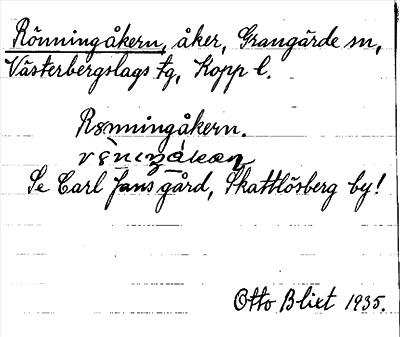 Rönningåkern, åker, Grangärde sn,
Västerbergslags tg, Kopp l.
Rønningåkern.
Se Carl Jans gård, Skattlösberg by!
Otto Blixt 1935.